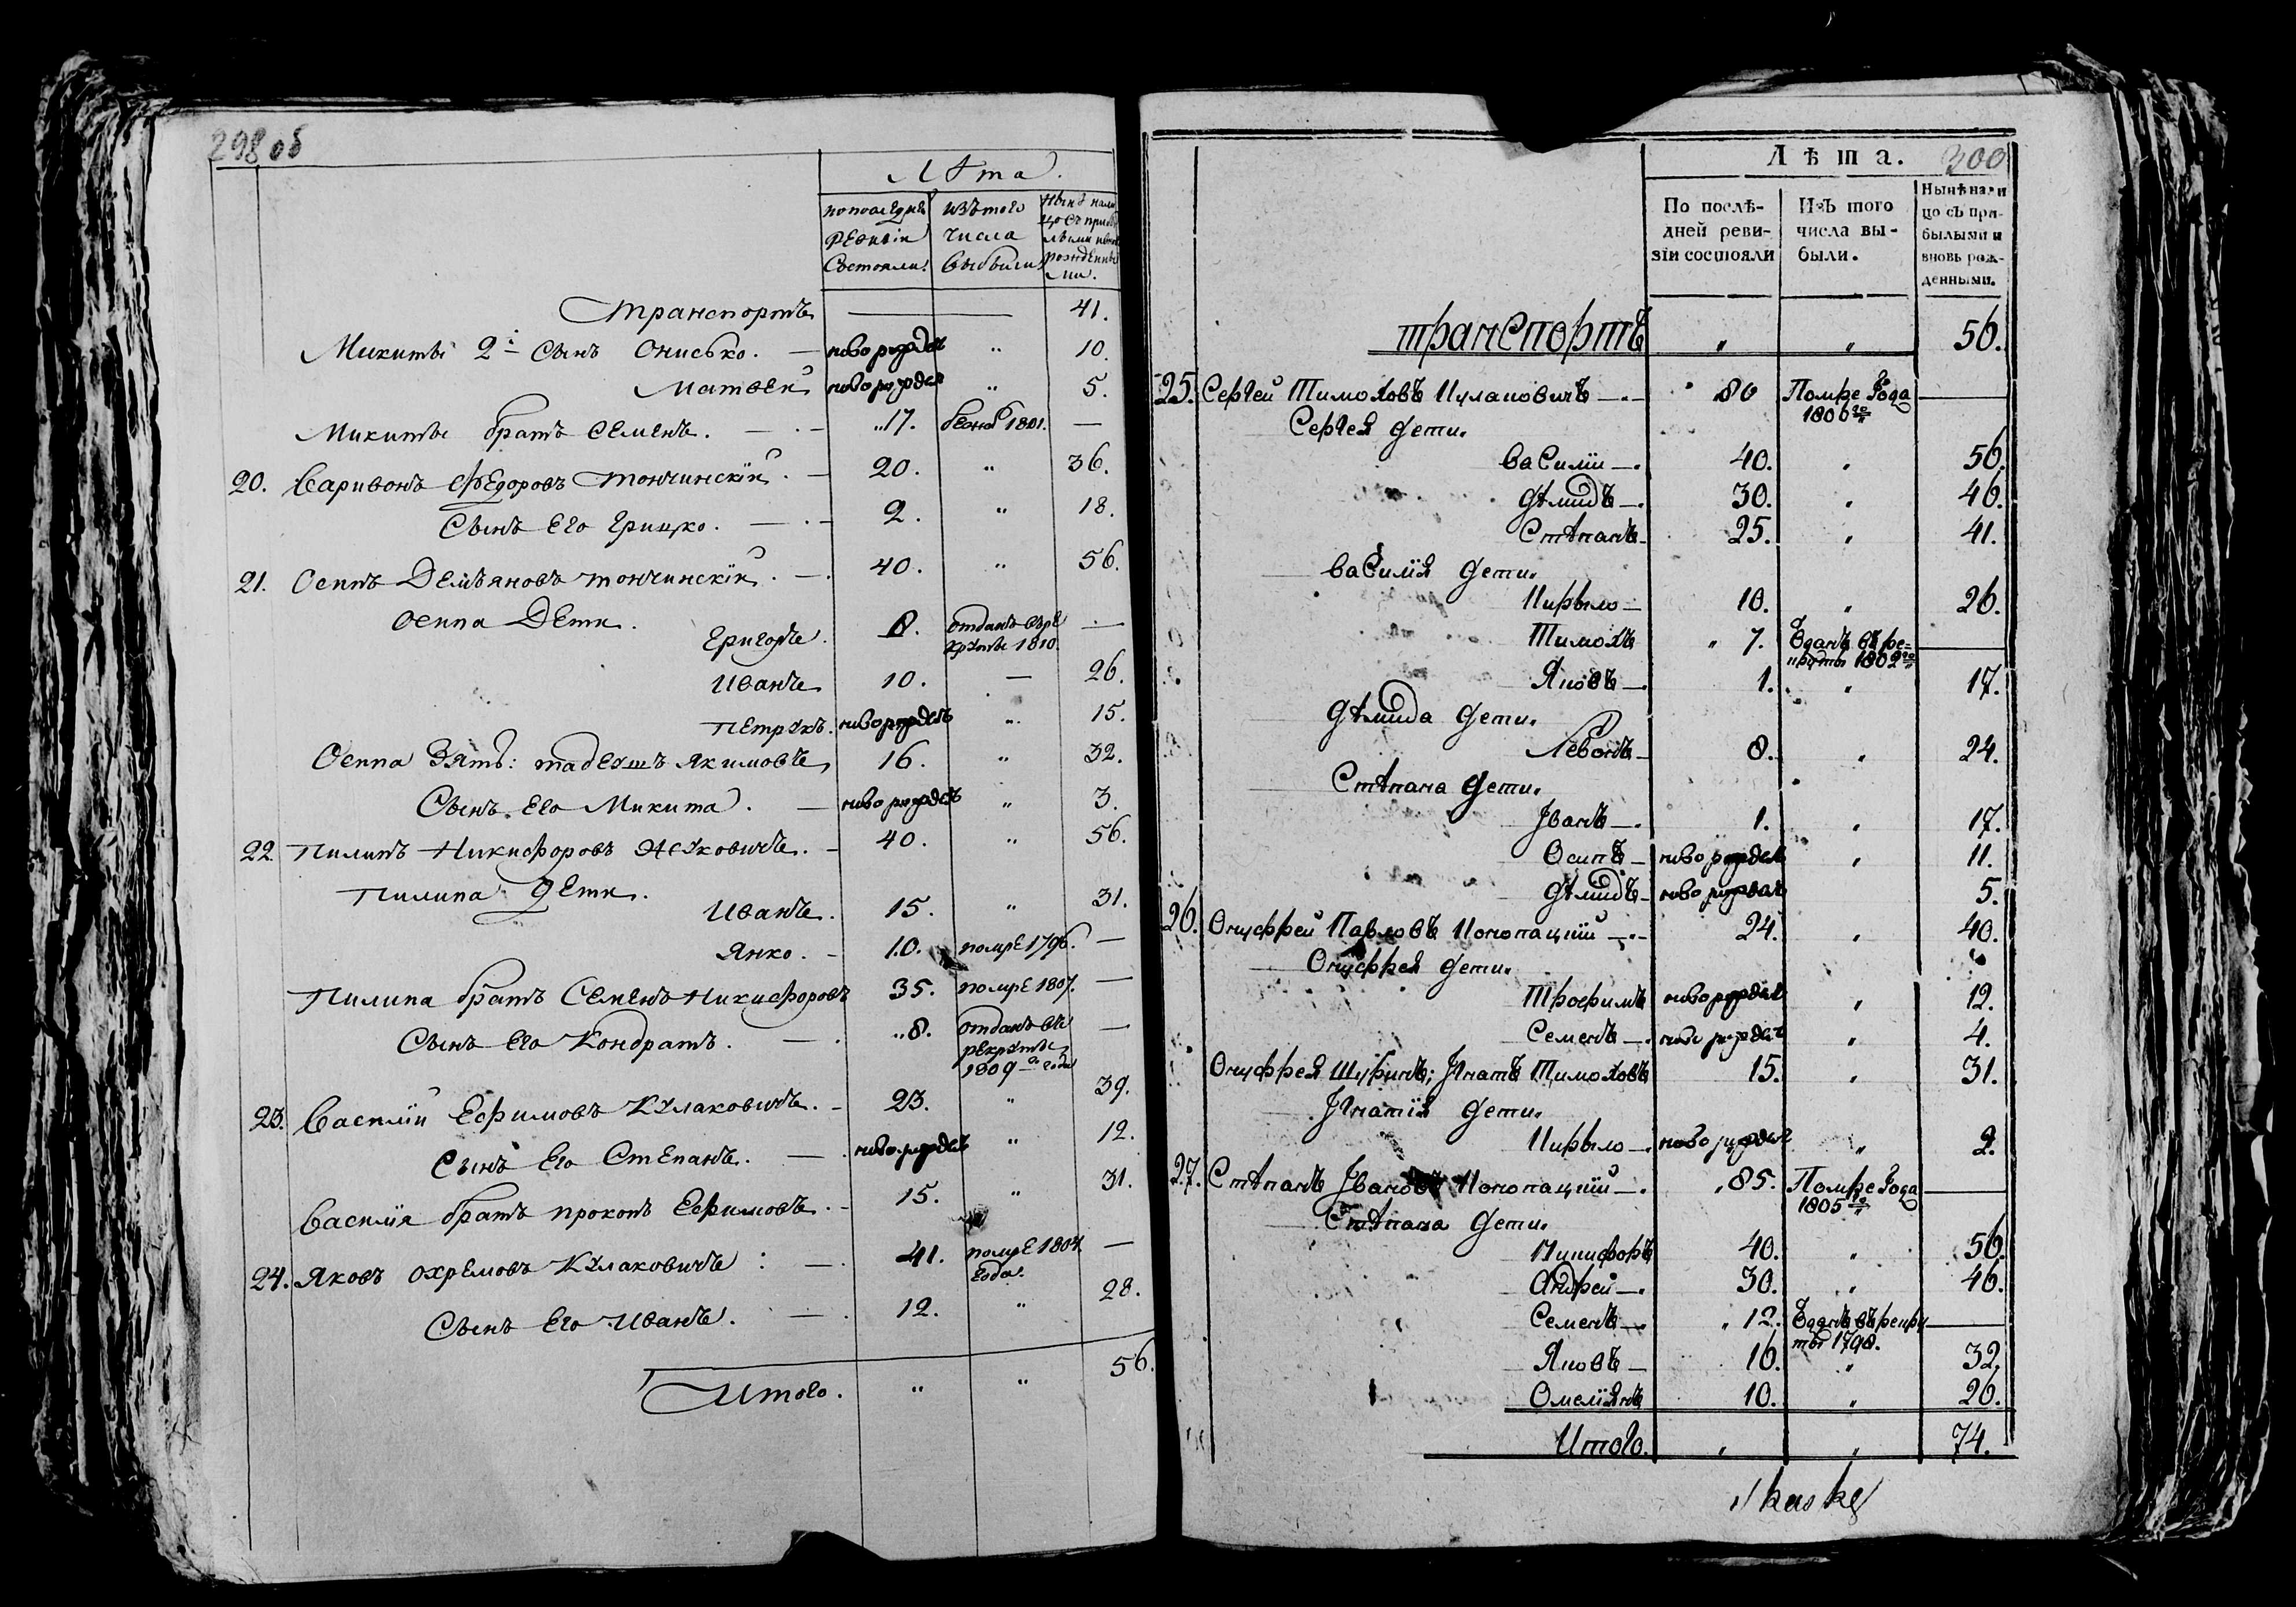 298 об
Лѣта.
по последней ревизіи состояли
изъ того числа выбыли
Нынѣ налицо съ прибылыми и вновь рожденными.
транспортъ — 41.
Микиты 2й сынъ Онисько. — новорожденъ " 10.
Матвей новорожденъ " 5.
Микиты братъ Семенъ. — 17. 1801. —
20. Саривонъ Федоровъ Тончинскій. — 20. " 36.
Сынъ Его Грицко. — 2. " 18.
21. Осипъ Демъяновъ тончинскій. — 40. " 56.
Осипа Дети.
Григоръ. 8. отданъ въ рекруты 1810. —
Иванъ 10. — 26.
Петрукъ. новорожденъ " 15.
Осипа Зять: тадеушъ Якимовъ 16. " 32.
Сынъ Его Микита. — новорожденъ " 3.
22. Пилипъ Никифоровъ Жуковичъ. — 40. " 56.
Пилипа Дети.
Иванъ. 15. " 31.
Янко. — 10. помре 1796. —
Пилипа братъ Семенъ Никифоровъ 35. помре 1807. —
Сынъ Его Кондратъ. — 8. отданъ въ рекруты 1809го года —
23. Василій Ефимовъ Кулаковичъ. — 23. " 39.
Сынъ Его Степанъ. — новорожденъ " 12.
Василія братъ прокопъ Ефимовъ. — 15. " 31.
24. Яковъ охремовъ Кулаковичъ: — 41. помре 1804 года. —
Сынъ Его Иванъ. — 12. " 28.
Итого. " " 56.
Лѣта. 300
По послѣдней ревизіи состояли
Изъ того числа выбыли.
Нынѣ налицо съ прибылыми и вновь рожденными.
транспортъ " " 56.
25. Сергей Тимоховъ Кулаковичъ — 80 Помре года 1806го —
Сергея дети.
Василій — 40. " 56.
Дѣмидъ — 30. " 46.
Стѣпанъ — 25. " 41.
Василія дети.
Кирыло — 10. " 26.
Тимохъ " 7. Зданъ въ рекруты 1802го —
Яковъ — 1. " 17.
Дѣмида дети.
Левонъ — 8. " 24.
Стѣпана дети.
Іванъ — 1. " 17.
Осипъ — новорожденъ " 11.
Дѣмидъ — новорожденъ 5.
26. Онуфрей Павловъ Конопацкій — 24. " 40.
Онуфрея дети.
Трофимъ новорожденъ " 12.
Семенъ — новорожденъ " 4.
Онуфрея Шуринъ; Ігнатъ Тимоховъ 15. " 31.
Ігнатія дети.
Кирыло — новорожденъ " 2.
27. Стѣпанъ Івановъ Конопацкій — 85. Помре года 1805го —
Стѣпана дети.
Никифоръ 40. " 56.
Андрей — 30. " 46.
Семенъ — " 12. Зданъ въ рекруты 1798. —
Яковъ — 16. " 32.
Омеліянъ 10. " 26.
Итого. " " 74.